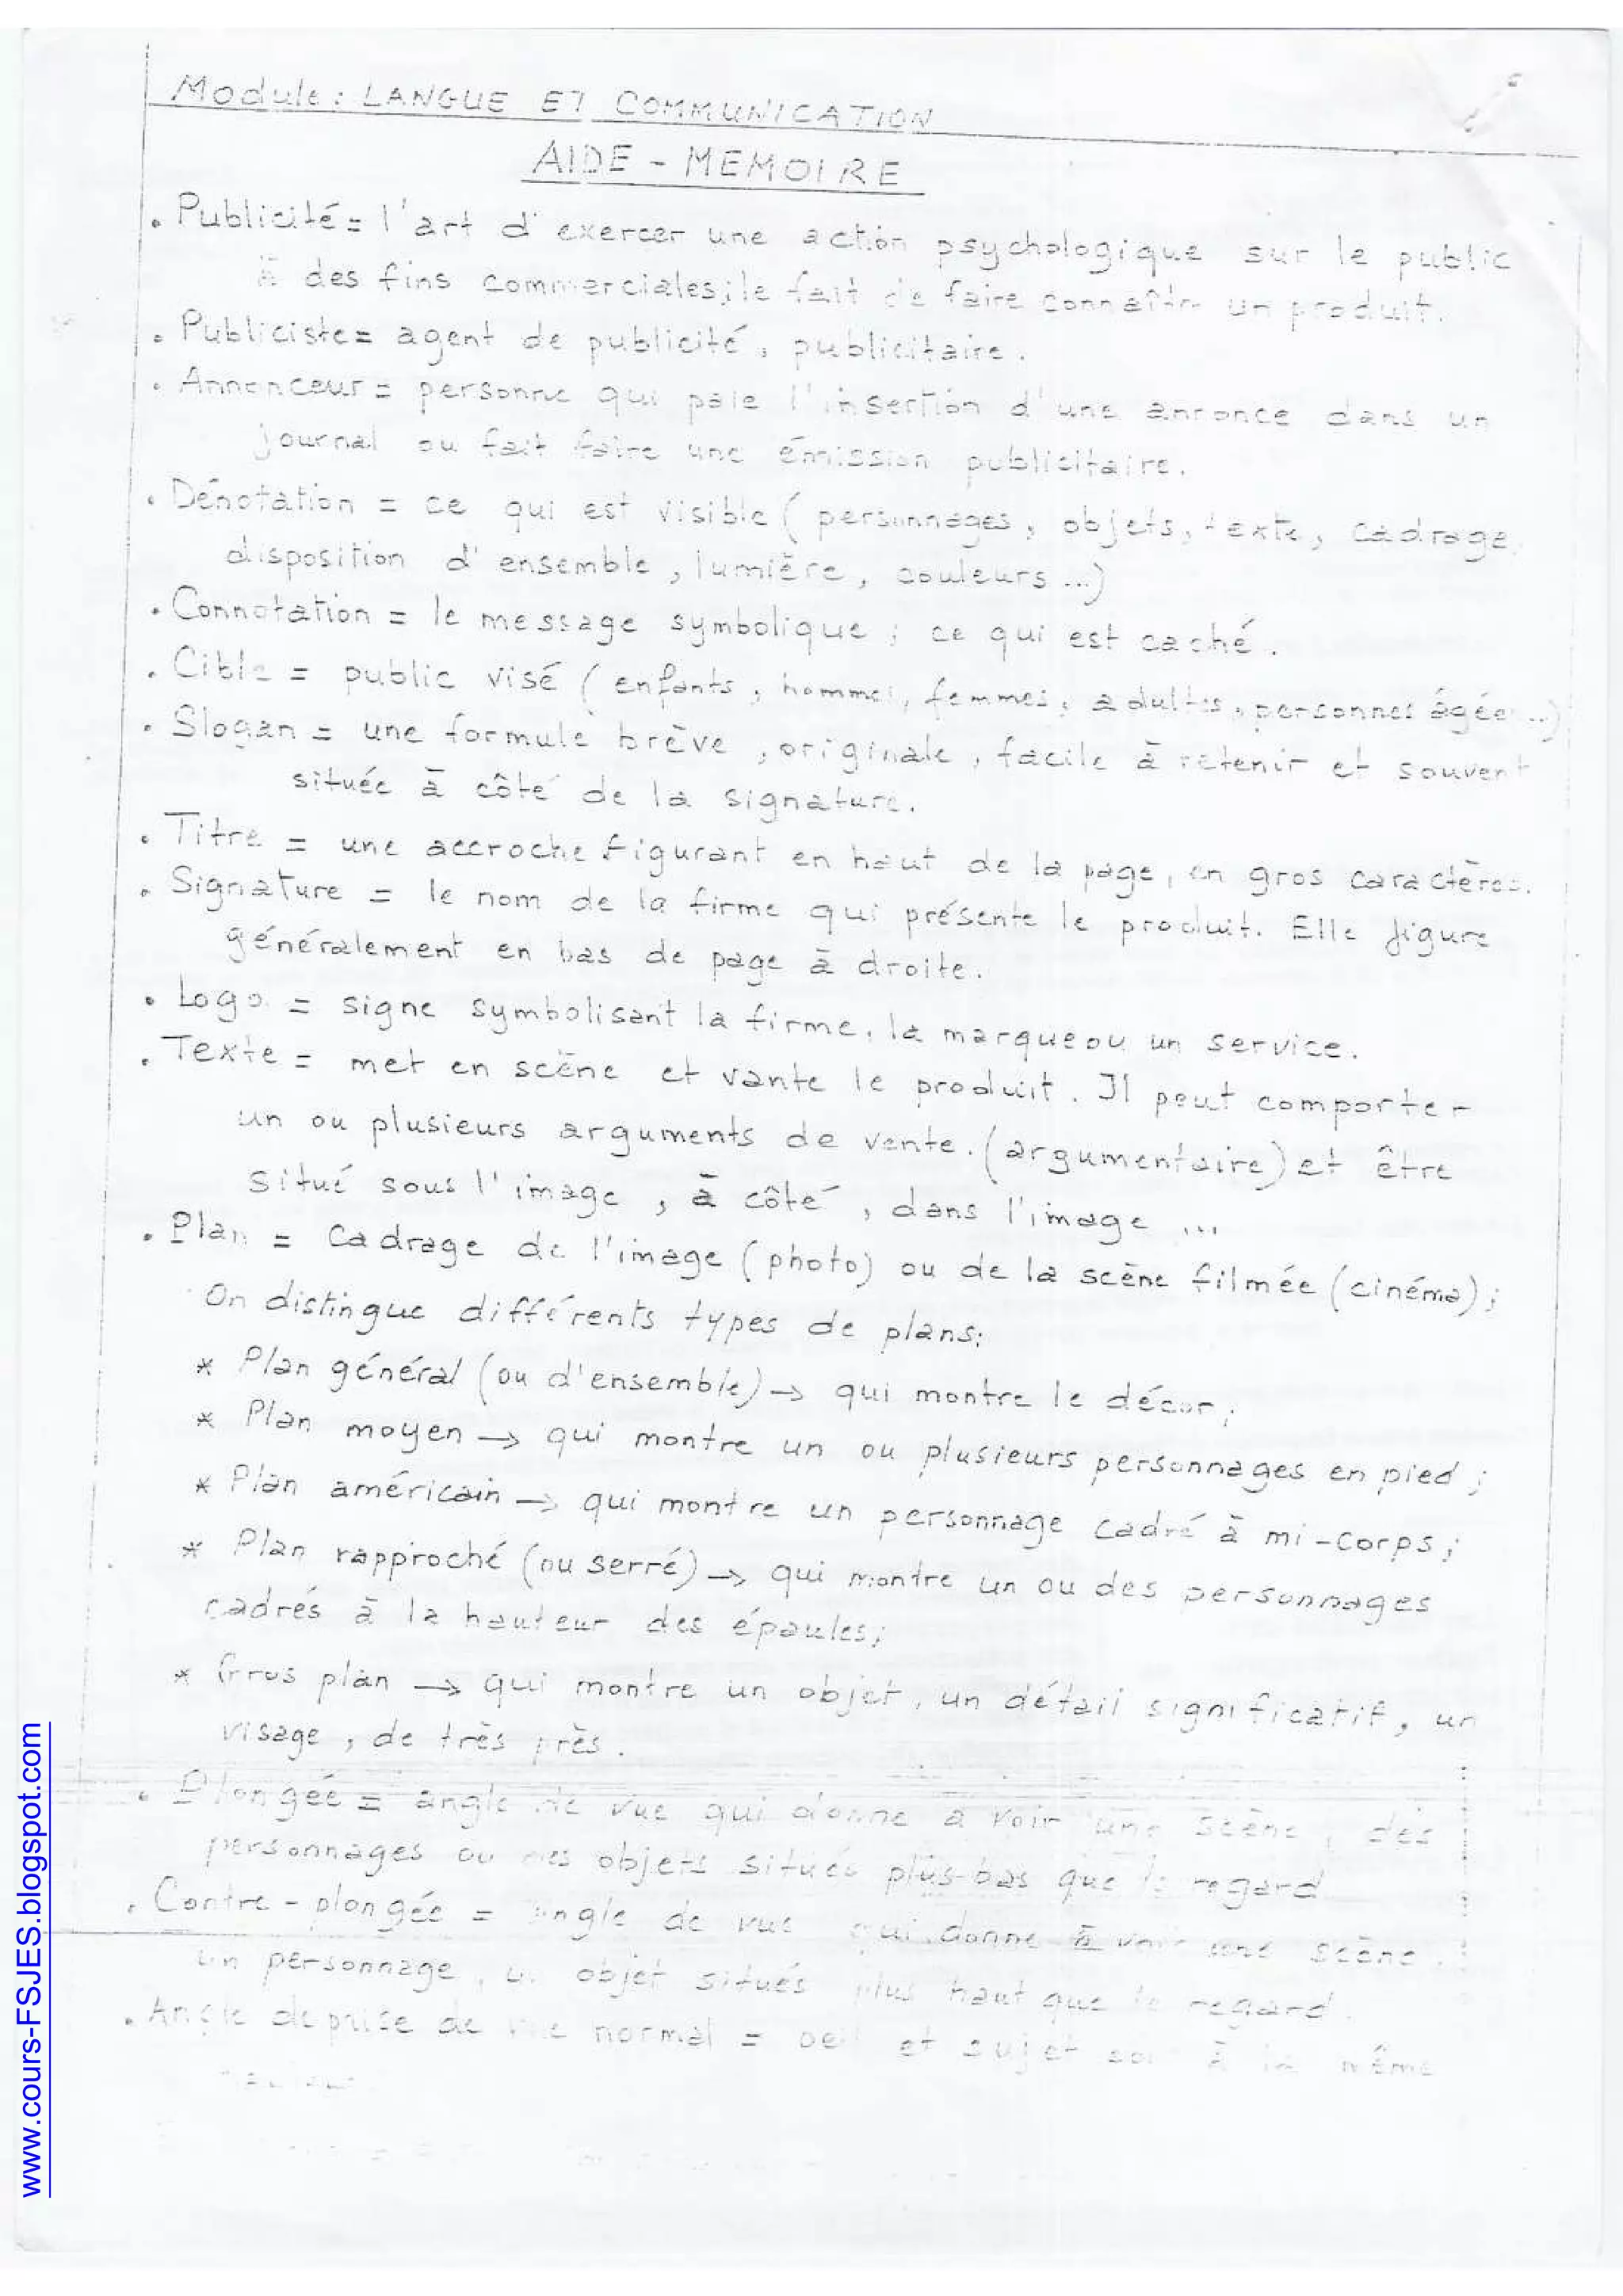 Module : LANGUE ET COMMUNICATION
AIDE - MEMOIRE
. Publicité = l'art d'exercer une action psychologique sur le public
à des fins commerciales ; le fait de faire connaître un produit.
. Publiciste = agent de publicité, publicitaire.
. Annonceur = personne qui paie l'insertion d'une annonce dans un
journal ou fait faire une émission publicitaire.
. Dénotation = ce qui est visible ( personnages, objets, texte, cadrage,
disposition d'ensemble, lumière, couleurs ...)
. Connotation = le message symbolique ; ce qui est caché.
. Cible = public visé ( enfants, hommes, femmes, adultes, personnes âgées ...)
. Slogan = une formule brève, originale, facile à retenir et souvent
située à côté de la signature.
. Titre = une accroche figurant en haut de la page, en gros caractères.
. Signature = le nom de la firme qui présente le produit. Elle figure
généralement en bas de page à droite.
. Logo = signe symbolisant la firme, la marque ou un service.
. Texte = met en scène et vante le produit. Il peut comporter
un ou plusieurs arguments de vente. (argumentaire) et être
situé sous l'image, à côté, dans l'image ...
. Plan = Cadrage de l'image (photo) ou de la scène filmée (cinéma) ;
On distingue différents types de plans:
* Plan général (ou d'ensemble) → qui montre le décor ;
* Plan moyen → qui montre un ou plusieurs personnages en pied ;
* Plan américain → qui montre un personnage cadré à mi-corps ;
* Plan rapproché (ou serré) → qui montre un ou des personnages
cadrés à la hauteur des épaules;
* Gros plan → qui montre un objet, un détail significatif, un
visage, de très près.
. Plongée = angle de vue qui donne à voir une scène, des
personnages ou des objets situés plus bas que le regard
. Contre-plongée = angle de vue qui donne à voir une scène,
un personnage, un objet situés plus haut que le regard.
. Angle de prise de vue normal = oeil et sujet sont à la même
www.cours-FSJES.blogspot.com